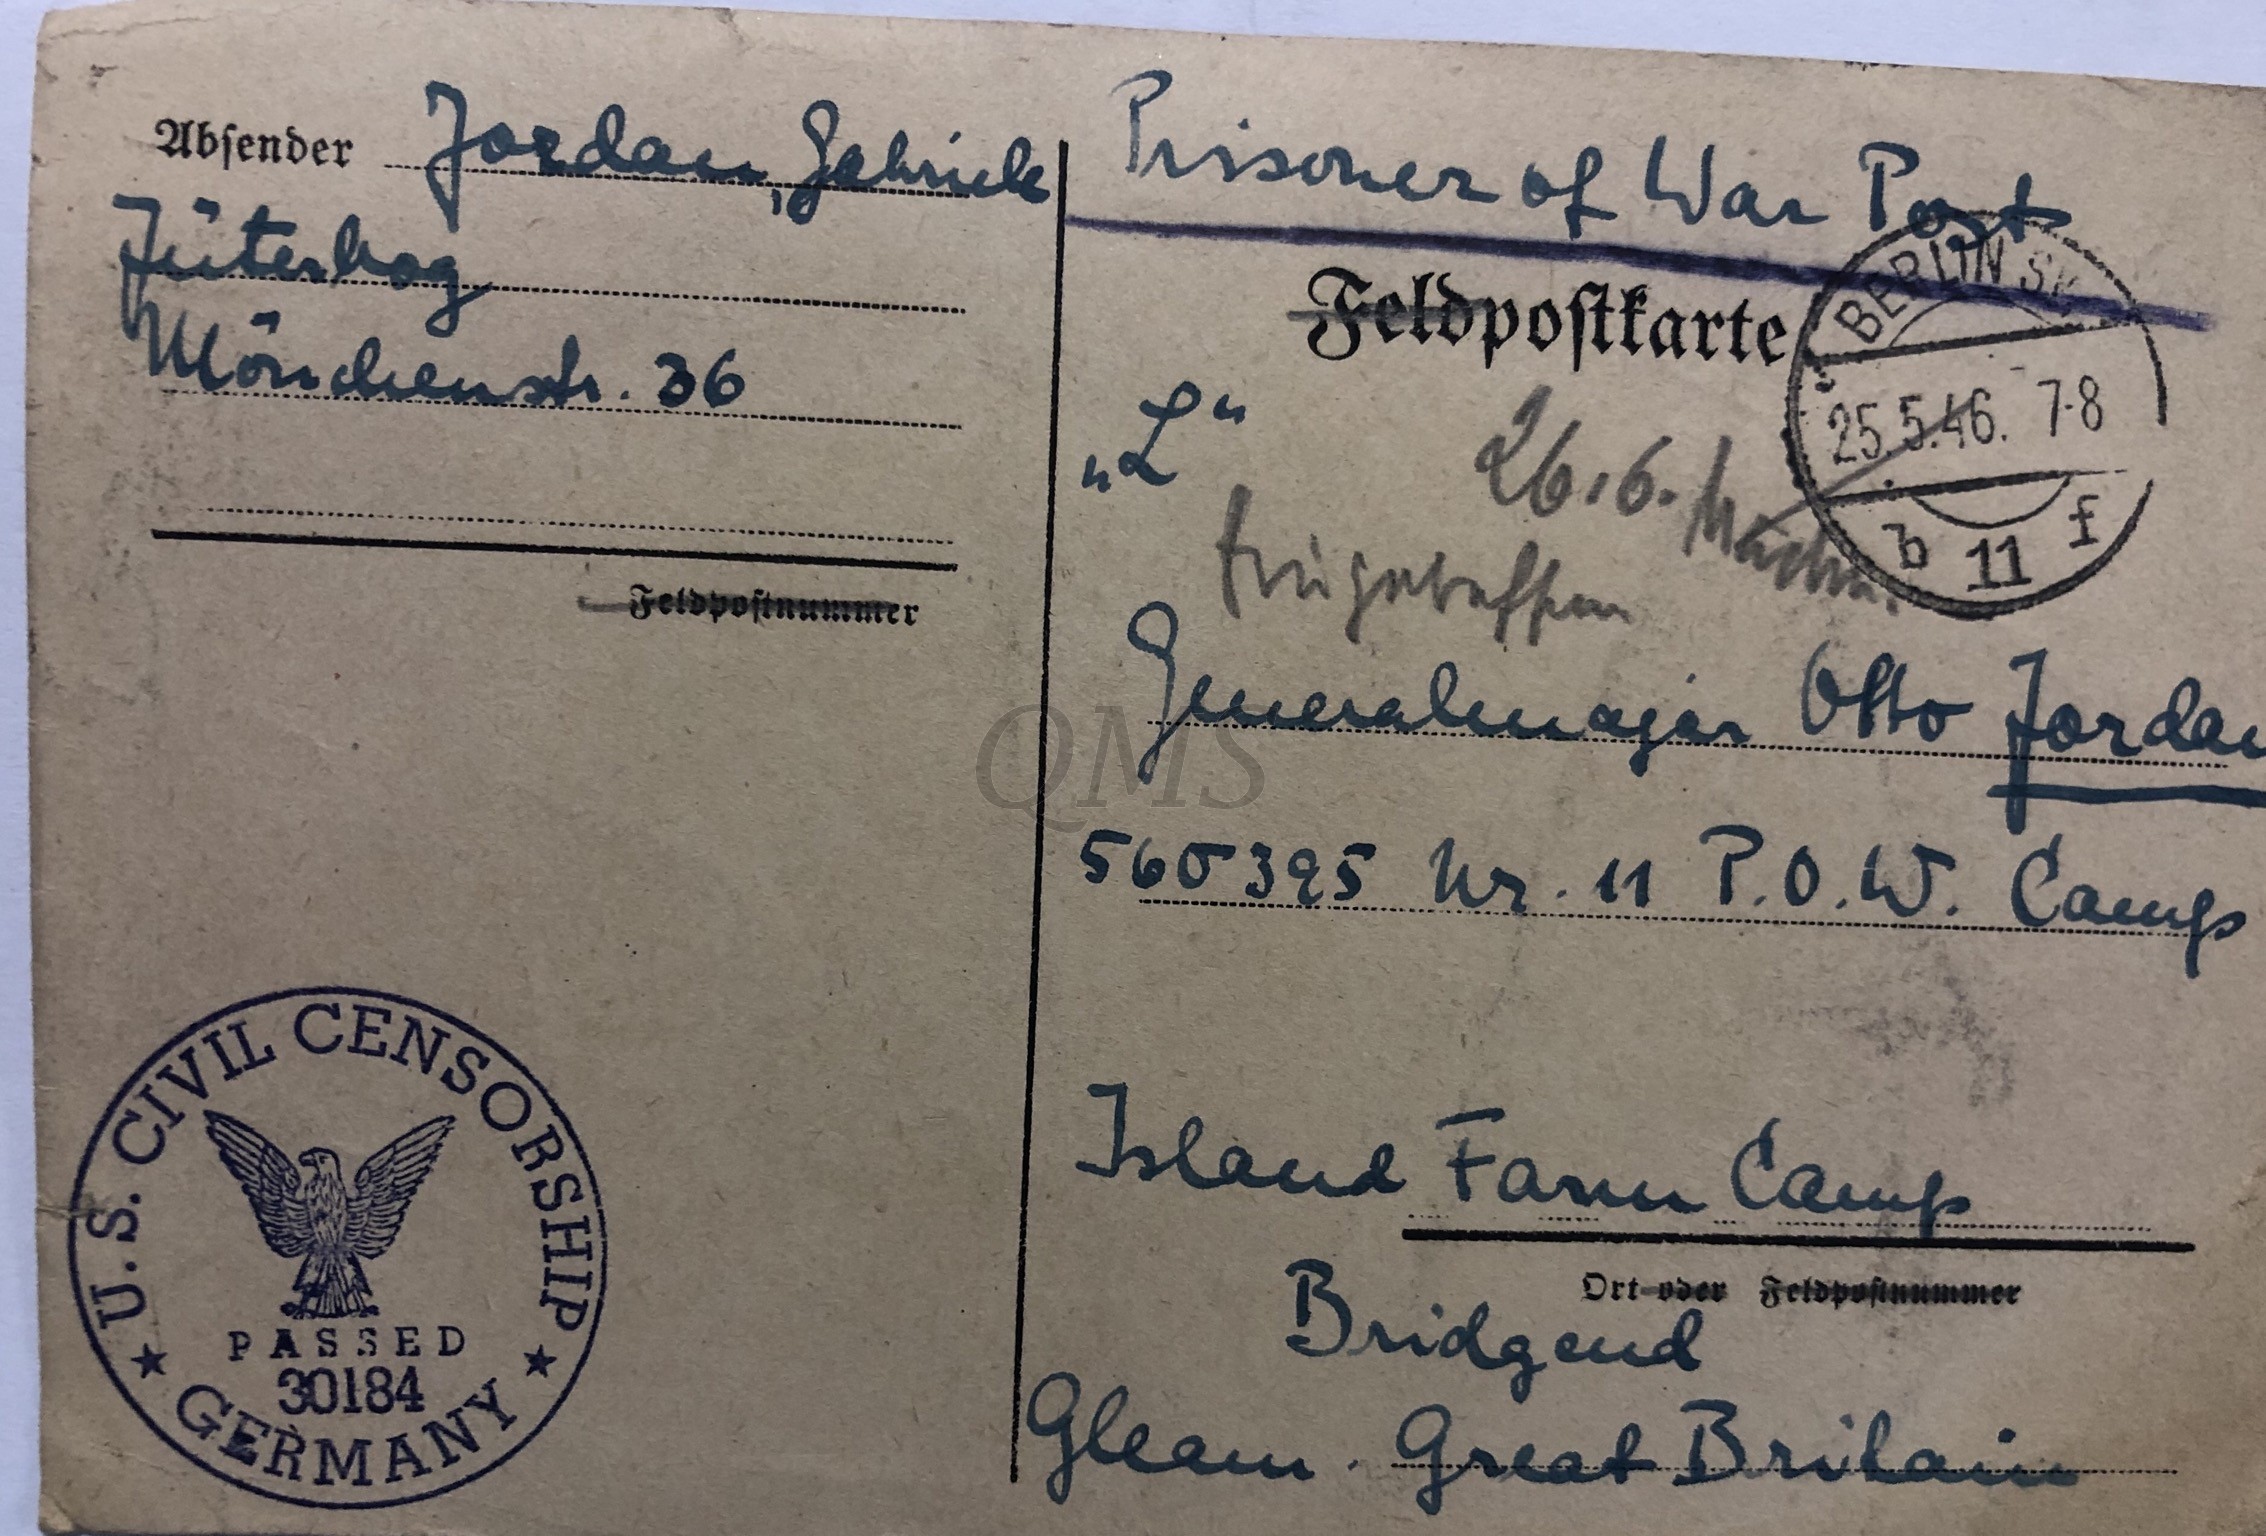 Absender Jordan, Gabriele
Jüterbog
Mönchenstr. 36
Feldpostnummer
Prisoner of War Post
Feldpostkarte
BERLIN SW
25.5.46. 7-8
b 11 f
„L“
26.6.
eingetroffen
Generalmajor Otto Jordan
560395 Nr. 11 P.O.W. Camp
Island Farm Camp
Ort oder Feldpostnummer
Bridgend
Gleam. Great Britain
QMS
U.S. CIVIL CENSORSHIP
PASSED
30184
GERMANY